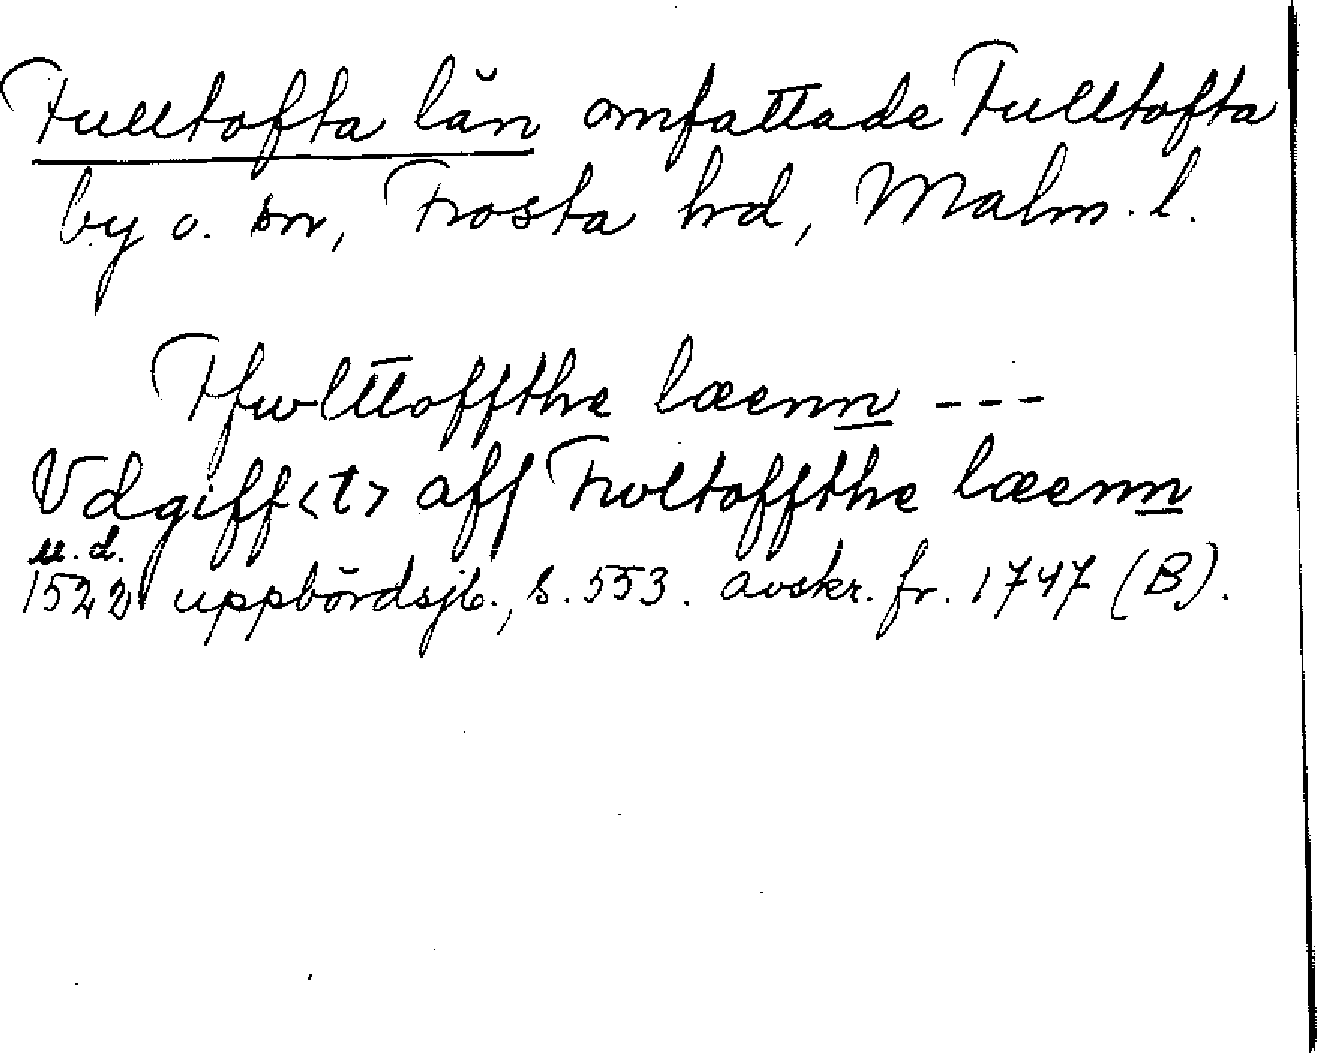 Fulltofta län omfattade Fulltofta
by o. sn, Frosta hrd, Malm. l.
Ffwlttoffthe læenn ---
Vdgiff<t> aff Fwltoffthe læenn
u.d.
1522 uppbördsjb., s. 553. avskr. fr. 1747 (B).